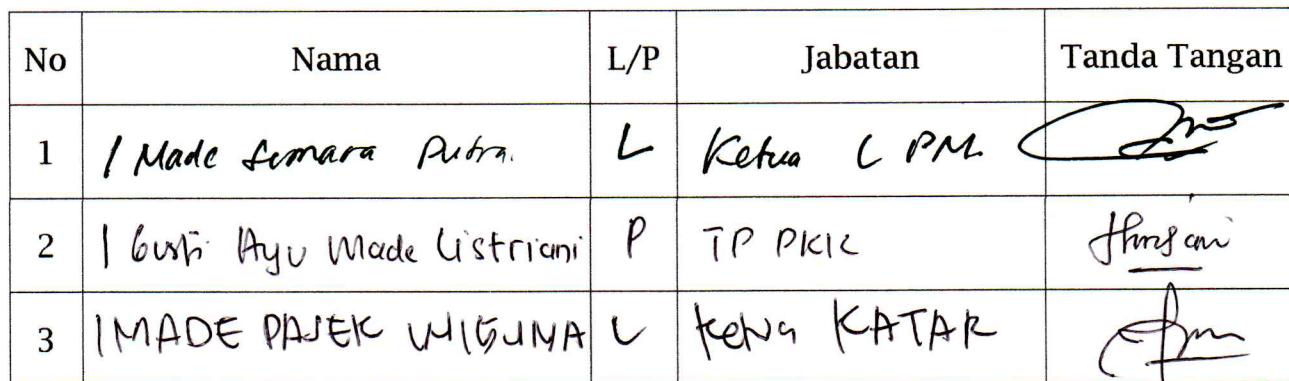 No Nama L/P Jabatan Tanda Tangan
1 I Made Semara Putra. L Ketua LPM.
2 I Gusti Ayu Made Listriani P TP PKK
3 I MADE PASEK WIGUNA L Ketua KATAR